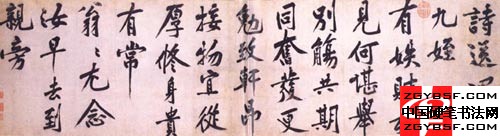 詩送
九姪
有妷財
見何堪舉
別觴共期
同奮發更
勉致軒昂
接物宜從
厚脩身貴
有常
翁〻尤念
汝早去到
親旁
ZGYBSF.COM
中国硬笔书法网
ZGYBSF.COM